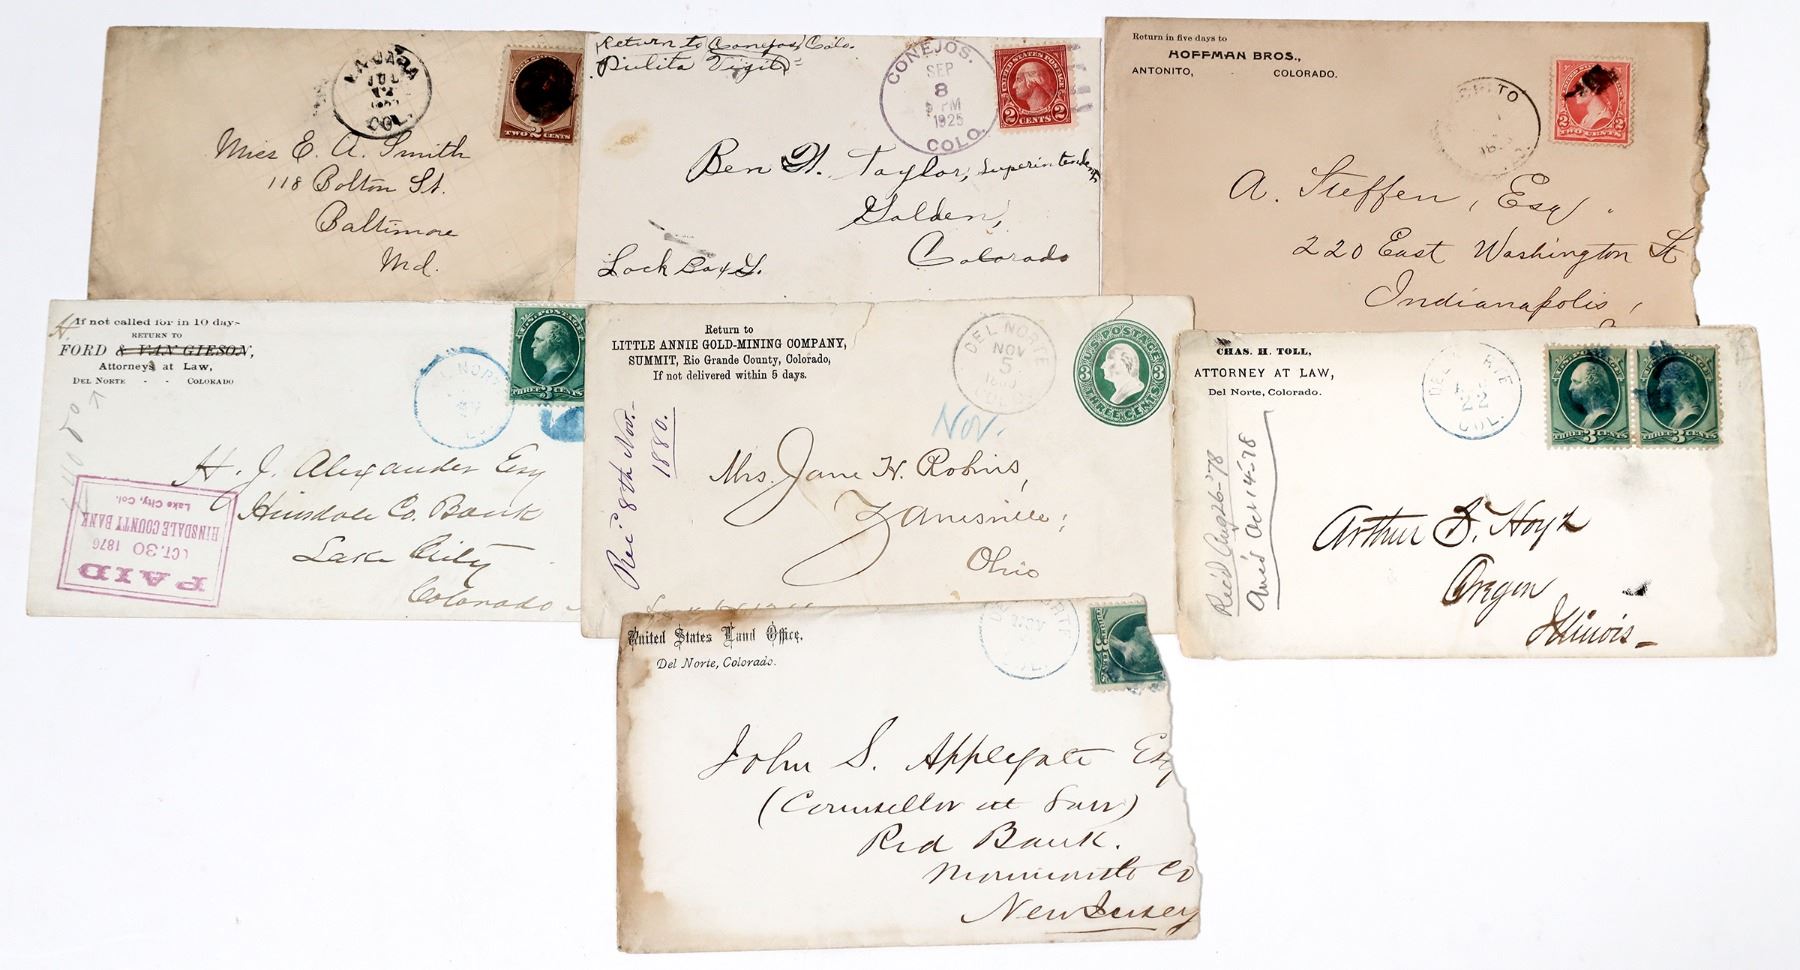 LA JARA
JUL
COL.
TWO 2 CENTS
Miss E. A. Smith
118 Bolton St.
Baltimore
Md.
Return to Conejos, Colo.
CONEJOS.
SEP
8
PM
1925
COLO.
UNITED STATES POSTAGE
2 CENTS 2
Ben H. Taylor, Superintendent
Golden,
Colorado
Lock Box G.
Return in five days to
HOFFMAN BROS.,
ANTONITO, COLORADO.
2 TWO CENTS 2
A. Steffen, Esq.
220 East Washington St
Indianapolis,
If not called for in 10 days
RETURN TO
FORD & VAN GIESON,
Attorneys at Law,
DEL NORTE - - COLORADO
DEL NORTE
U.S. POSTAGE
THREE 3 CENTS
H. J. Alexander Esq
Hinsdale Co. Bank
Lake City
Colorado
PAID
OCT. 30 1876
HINSDALE COUNTY BANK
Lake City, Col.
Return to
LITTLE ANNIE GOLD-MINING COMPANY,
SUMMIT, Rio Grande County, Colorado,
If not delivered within 5 days.
DEL NORTE
NOV
5
1880
COLO
U.S. POSTAGE
3 3
THREE CENTS
Nov.
Rec 8th Nov.
1880.
Mrs. Jane H. Robins,
Zanesville;
Ohio
CHAS. H. TOLL,
ATTORNEY AT LAW,
Del Norte, Colorado.
DEL NORTE
22
COL.
THREE 3 CENTS
THREE 3 CENTS
Rec'd Aug 26-'78
Ans'd Oct 14-78
Arthur S. Hoyt
Oregon
Illinois
United States Land Office,
Del Norte, Colorado.
John S. Applegate Esq
(Counsellor at Law)
Red Bank.
Monmouth Co
New Jersey